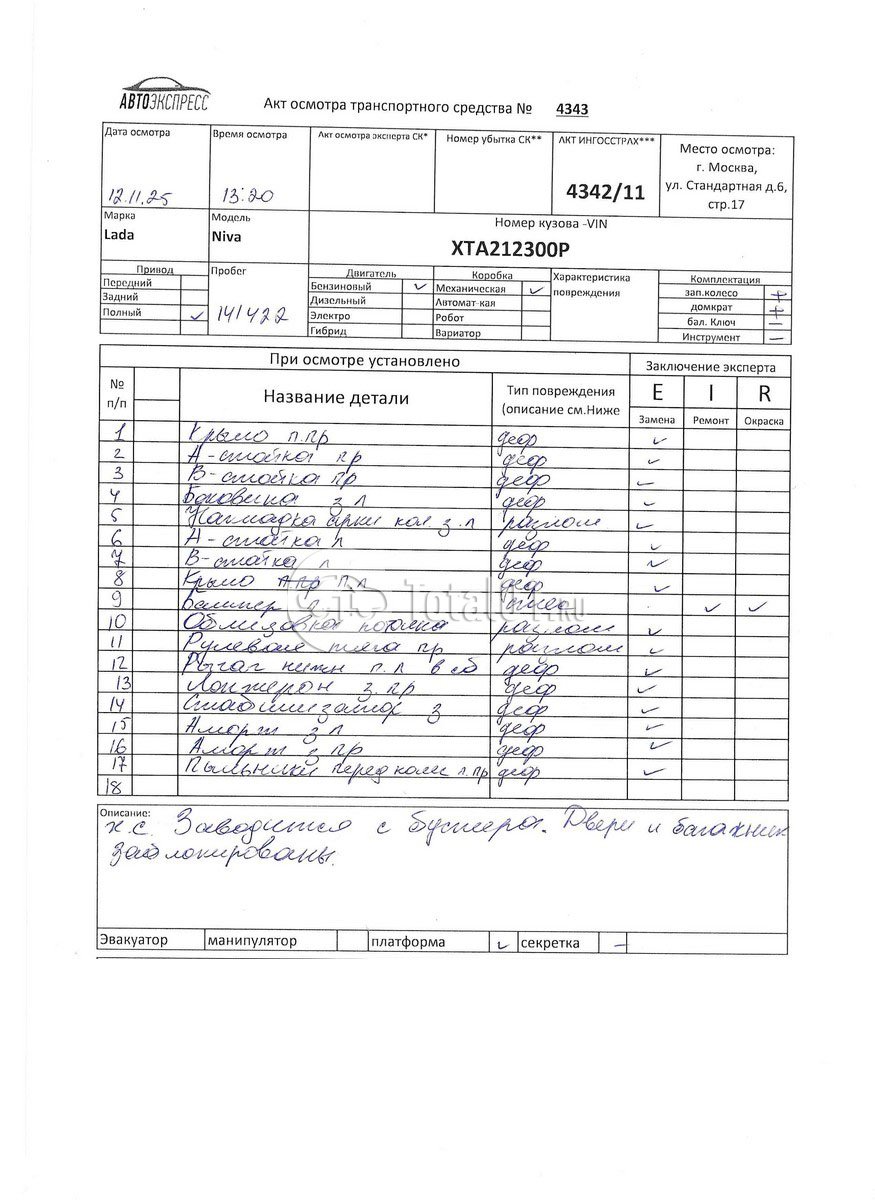 АВТОЭКСПРЕСС
Акт осмотра транспортного средства № 4343
Дата осмотра
Время осмотра
Акт осмотра эксперта СК*
Номер убытка СК**
АКТ ИНГОССТРАХ***
Место осмотра:
г. Москва,
ул. Стандартная д.6,
стр.17
12.11.25
13:20
4342/11
Марка
Модель
Номер кузова -VIN
Lada
Niva
XTA212300P
Привод
Пробег
Двигатель
Коробка
Характеристика
повреждения
Комплектация
Передний
Бензиновый ✓
Механическая ✓
зап.колесо +
Задний
Дизельный
Автомат-кая
домкрат +
Полный ✓
141422
Электро
Робот
бал. Ключ –
Гибрид
Вариатор
Инструмент –
При осмотре установлено
Заключение эксперта
№
п/п
Название детали
Тип повреждения
(описание см.Ниже
E I R
Замена Ремонт Окраска
1 Крыло п.пр деф ✓
2 А-стойка пр деф ✓
3 В-стойка пр деф ✓
4 Боковина з л деф ✓
5 Накладка арки кол з.л разлом ✓
6 А-стойка л деф ✓
7 В-стойка л деф ✓
8 Крыло п.л деф ✓
9 Бампер ✓ ✓
10 Облицовка потолка разлом ✓
11 Рулевая тяга пр разлом ✓
12 Рычаг нижн п.л в сб деф ✓
13 Лонжерон з.пр деф ✓
14 Стабилизатор з деф ✓
15 Аморт з л деф ✓
16 Аморт з пр деф ✓
17 Пыльники перед колес л.пр деф ✓
18
Total01.RU
Описание:
х.с. Заводится с бустера. Двери и багажник
заблокированы.
Эвакуатор манипулятор платформа ✓ секретка –